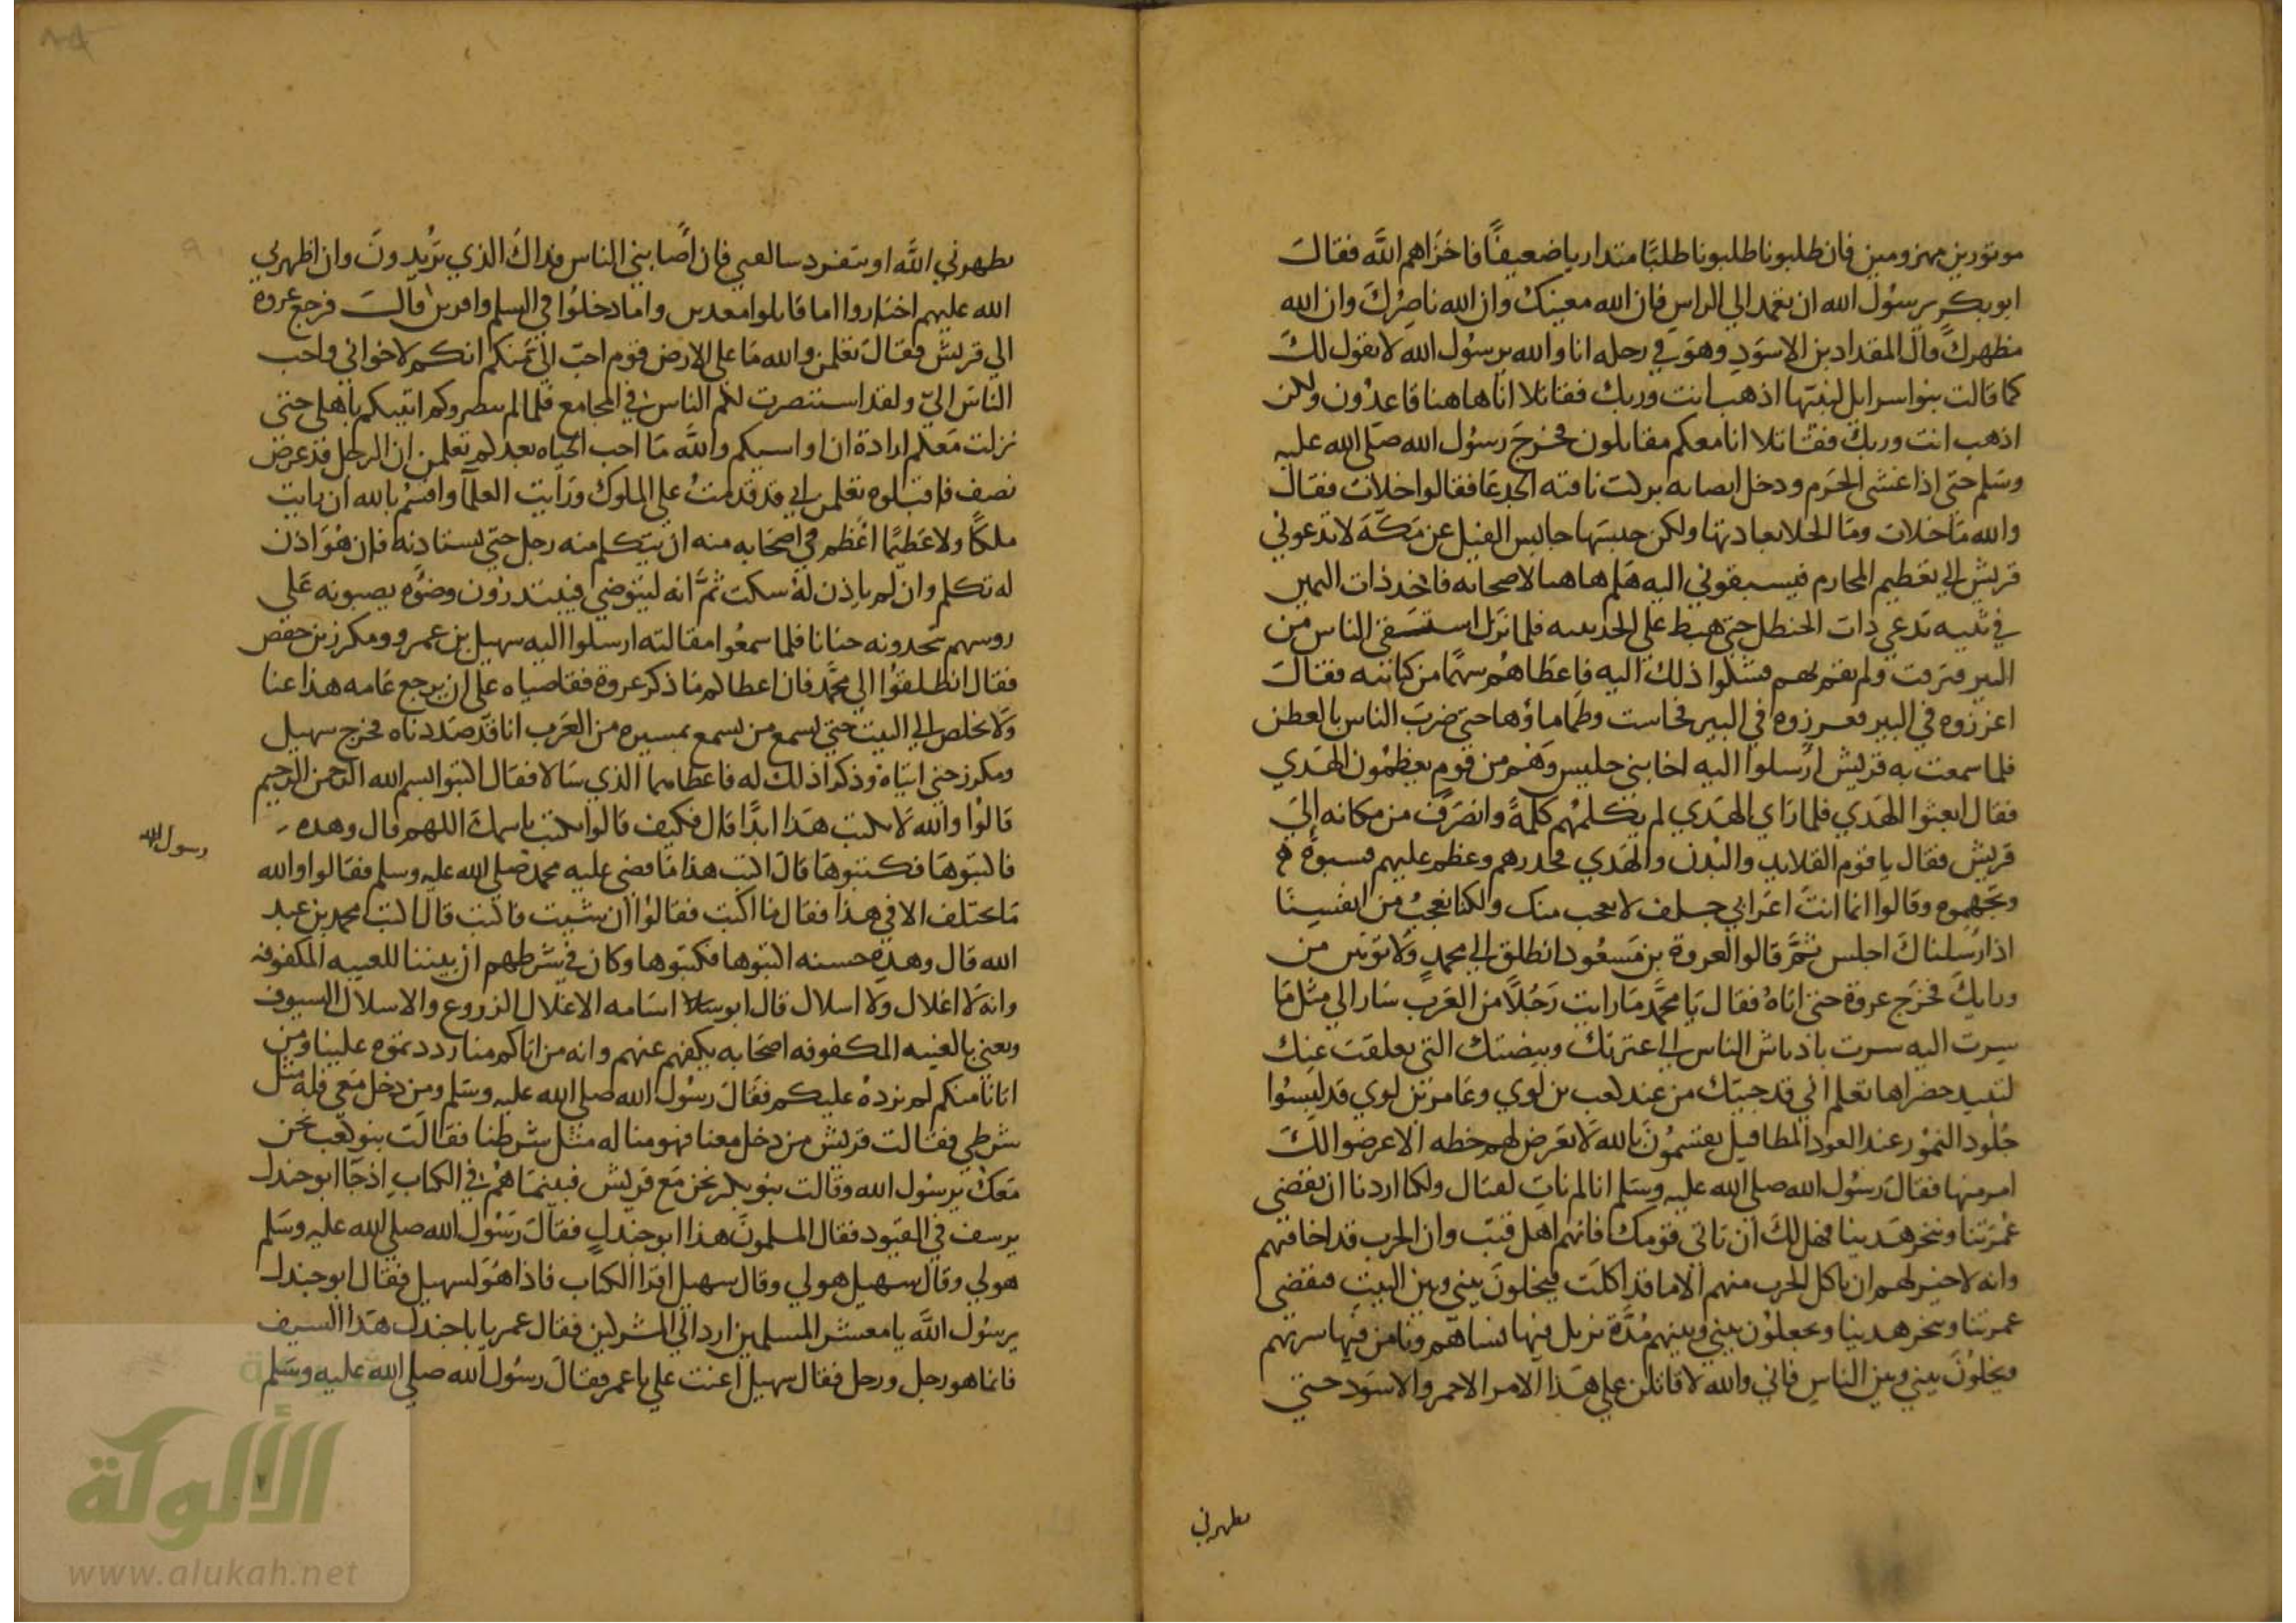 موتورين مهزومين فان طلبونا طلبونا طلبًا متداريا ضعيفًا فاخزاهم الله فقالت
ابوبكر يرسول الله ان تعمد الي الراس فان الله معينك وان الله ناصرك وان الله
مظهرك وقال المقداد بن الاسود وهو في رحله انا والله يرسول الله لا نقول لك
كما قالت بنو اسرايل لنبيها اذهب انت وربك فقاتلا انا هاهنا قاعدون ولكن
اذهب انت وربك فقاتلا انا معكم مقاتلون فخرج رسول الله صلي الله عليه
وسلم حتي اذا غشي الحرم ودخل انصابه بركت ناقته الجدعا فقالوا خلات فقال
والله ما خلات وما الخلا بعادتها ولكن حبسها حابس الفيل عن مكة لا تدعوني
قريش الي تعظيم المحارم فيسبقوني اليه هلم هاهنا لاصحابه فاخذ ذات اليمين
في ثنيه تدعي ذات الحنظل حتي هبط علي الحديبيه فلما نزل استسقي الناس من
البير فنزفت ولم تقم بهم فشكوا ذلك اليه فاعطاهم سهمًا من كنانته فقالت
اغرزوه في البير فغرزوه في البير فجاشت وطما ماؤها حتي ضرب الناس بالعطن
فلما سمعت به قريش ارسلوا اليه اخا بني حليس وهم من قوم يعظمون الهدي
فقال ابعثوا الهدي فلما راي الهدي لم يكلمهم كلمة وانصرف من مكانه الي
قريش فقال يا قوم القلايد والبدن والهدي فحذرهم وعظم عليهم فسبوه
وتجهموه وقالوا انما انت اعرابي جلف لا نعجب منك ولكنا نعجب من انفسنا
اذ ارسلناك اجلس ثم قالوا لعروة بن مسعود انطلق الي محمد ولا توتين من
ورايك فخرج عروة حتي اتاه فقال يا محمد ما رايت رجلا من العرب سار الي مثل ما
سرت اليه سرت باوباش الناس الي عترتك وبيضتك التي تفلقت عنك
لتبيد خضراها تعلم اني قد جيتك من عند كعب بن لوي وعامر بن لوي قد لبسوا
جلود النمور عند العوذ المطافيل يقسمون بالله لا تعرض لهم خطه الا عرضوا لك
امر منها فقال رسول الله صلي الله عليه وسلم انا لم نات لقتال ولكنا اردنا ان نقضي
عمرتنا وننحر هدينا فهل لك ان تاتي قومك فانهم اهل قتب وان الحرب قد اخافتهم
وانه لا خير لهم ان تاكل الحرب منهم الا ما قد اكلت فيخلون بيني وبين البيت فنقضي
عمرتنا وننحر هدينا ويجعلون بيني وبينهم مدة نزيل فيها نساهم ونامن فيها سربهم
ويخلون بيني وبين الناس فاني والله لاقاتلن علي هذا الامر الاحمر والاسود حتي
يظهرني
يظهرني الله او تنفرد سالفتي فان اصابني الناس فذاك الذي تريدون وان اظهرني
الله عليهم اختاروا اما قاتلوا معدين واما دخلوا في السلم وافرين قالت فرجع عروه
الي قريش فقال تعلمن والله ما علي الارض قوم احب الي منكم انكم لاخواني واحب
الناس الي ولقد استنصرت لكم الناس في المجامع فلما لم ينصروكم اتيتكم باهلي حتي
نزلت معكم ارادة ان اواسيكم والله ما احب الحياه بعدكم تعلمن ان الرجل قد عرض
نصف فاقبلوه تعلمن اني قد قدمت علي الملوك ورايت العظما واقسم بالله ان رايت
ملكًا ولا عظيمًا اعظم في اصحابه منه ان يتكلم منه رجل حتي يستاذنه فان هو اذن
له تكلم وان لم ياذن له سكت ثم انه ليتوضي فيبتدرون وضوه يصبونه علي
روسهم تتخذونه حنانا فلما سمعوا مقالته ارسلوا اليه سهيل بن عمرو ومكرز بن حفص
فقال انطلقوا الي محمد فان اعطاكم ما ذكر عروة فقاضياه علي ان يرجع عامه هذا عنا
ولا يخلص الي البيت حتي يسمع من يسمع بمسيره من العرب انا قد صددناه فخرج سهيل
ومكرز حتي اتياه وذكرا ذلك له فاعطاهما الذي سالا فقال اكتبوا بسم الله الرحمن الرحيم
قالوا والله لا نكتب هذا ابدًا قال فكيف قالوا نكتب باسمك اللهم قال وهذه
فاكتبوها فكتبوها قال اكتب هذا ما قضي عليه محمد صلي الله عليه وسلم فقالوا والله
رسول الله
ما نختلف الا في هذا فقال ما اكتب فقالوا ان شيت فاكتب قال اكتب محمد بن عبد
الله قال وهذه حسنه اكتبوها فكتبوها وكان في شرطهم ان بيننا للعيبه المكفوفه
وانه لا اغلال ولا اسلال قال ابو اسامه الاغلال الدروع والاسلال السيوف
ويعني بالعيبه المكفوفه اصحابه يكفهم عنهم وانه من اتاكم منا رددتموه علينا ومن
اتانا منكم لم نرده عليكم فقال رسول الله صلي الله عليه وسلم ومن دخل معي فله مثل
شرطي فقالت قريش من دخل معنا فهو منا له مثل شرطنا فقالت بنو كعب نحن
معك يرسول الله وقالت بنو بكر نحن مع قريش فبينما هم في الكتاب اذ جا ابو جندل
يرسف في القيود فقال المسلمون هذا ابو جندل فقال رسول الله صلي الله عليه وسلم
هو لي وقال سهيل هو لي وقال سهيل اقرا الكتاب فاذا هو لسهيل فقال ابو جندل
يرسول الله يا معشر المسلمين ارد الي المشركين فقال عمر يا با جندل هذا السيف
فانما هو رجل ورجل فقال سهيل اعنت علي يا عمر فقال رسول الله صلي الله عليه وسلم
الألوكة
www.alukah.net